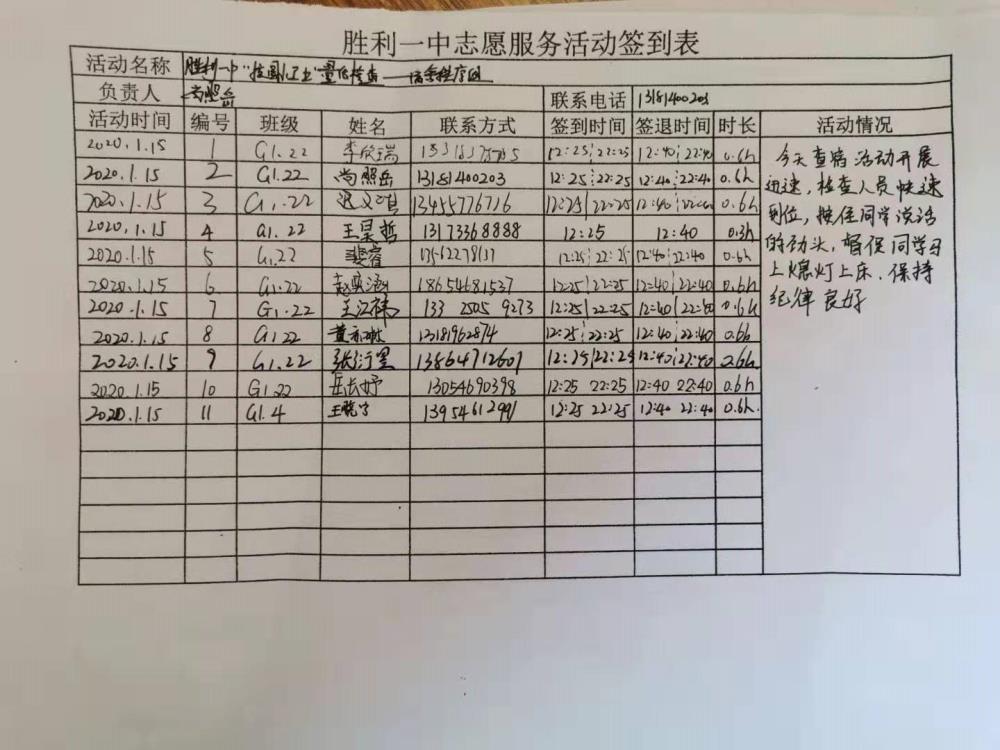 胜利一中志愿服务活动签到表
活动名称 胜利一中
负责人 尚熙岳 联系电话 13181400203
活动时间 编号 班级 姓名 联系方式 签到时间 签退时间 时长 活动情况
2020.1.15 1 G1.22 李欣瑞 12:25 22:25 12:40 22:40 0.6h
2020.1.15 2 G1.22 尚熙岳 13181400203 12:25 22:25 12:40 22:40 0.6h
2020.1.15 3 G1.22 13455776716 12:25 22:25 12:40 22:40 0.6h
2020.1.15 4 G1.22 王昊哲 13173368888 12:25 12:40 0.3h
2020.1.15 5 G1.22 裴睿 13562278137 12:25 22:25 12:40 22:40 0.6h
2020.1.15 6 G1.22 赵奕涵 18654681537 12:25 22:25 12:40 22:40 0.6h
2020.1.15 7 G1.22 王江祎 133 2505 9273 12:25 22:25 12:40 22:40 0.6h
2020.1.15 8 G1.22 13181962874 12:25 22:25 12:40 22:40 0.6h
2020.1.15 9 G1.22 13864712607 12:25 22:25 12:40 22:40 0.6h
2020.1.15 10 G1.22 岳长妤 13054690398 12:25 22:25 12:40 22:40 0.6h
2020.1.15 11 G1.4 王晓宁 12:25 22:25 12:40 22:40 0.6h
今天查宿活动开展
迅速,检查人员快速
到位,按住同学说话
的劲头,督促同学马
上熄灯上床、保持
纪律良好